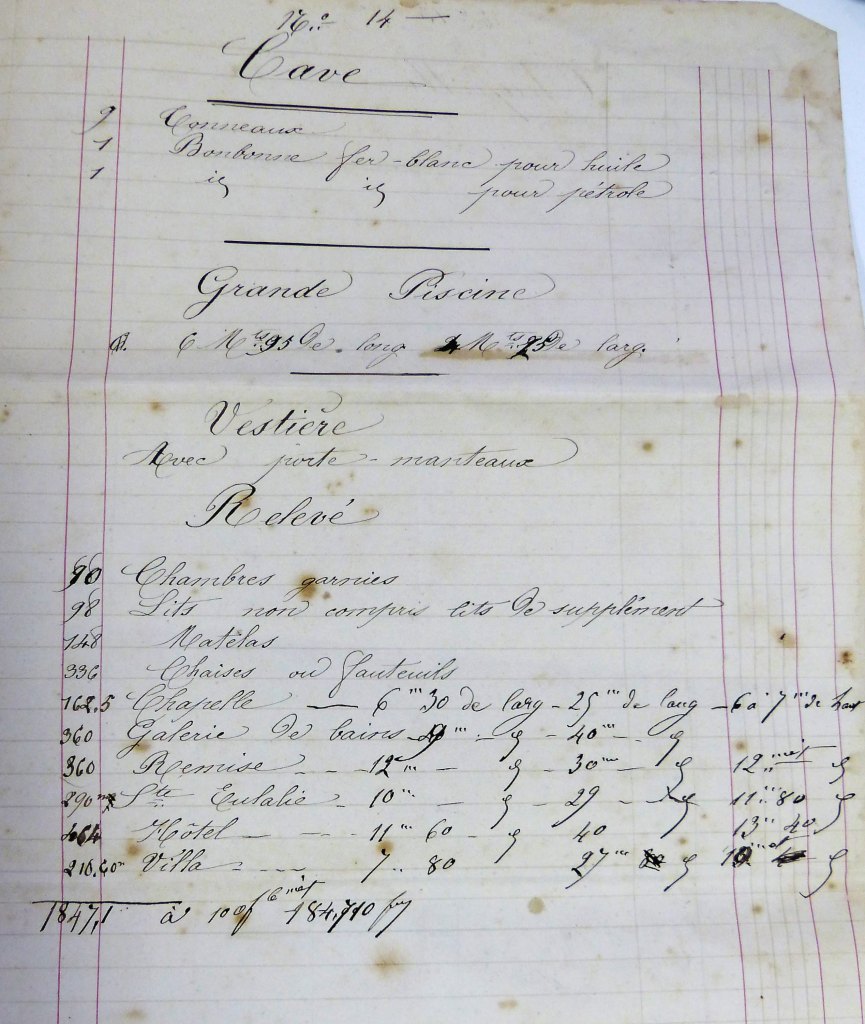 N.o 14 —
Cave
9 Tonneaux
1 Bonbonne fer-blanc pour huile
1 id id pour pétrole
Grande Piscine
6 Mts 95 De long 4 Mts 25 De larg.
Vestière
Avec porte-manteaux
Relevé
90 Chambres garnies
98 Lits non compris lits de supplément
148 Matelas
336 Chaises ou fauteuils
162,5 Chapelle — 6 m 30 de larg - 25 m de long - 6 à 7 m de haut
360 Galerie de bains - 9 m - d - 40 m - d
360 Remise - - 12 m - d - 30 m - d 12 mèt d
290 Ste Eulalie - 10 m - d - 29 - d 11 m 80 d
464 Hôtel — - - 11 m 60 - d 40 13 m 40 d
210.60 m Villa - - - - 7 .. 80 27 m d 10 mèt d
1847,1 à 100 f le mèt 184,710 f